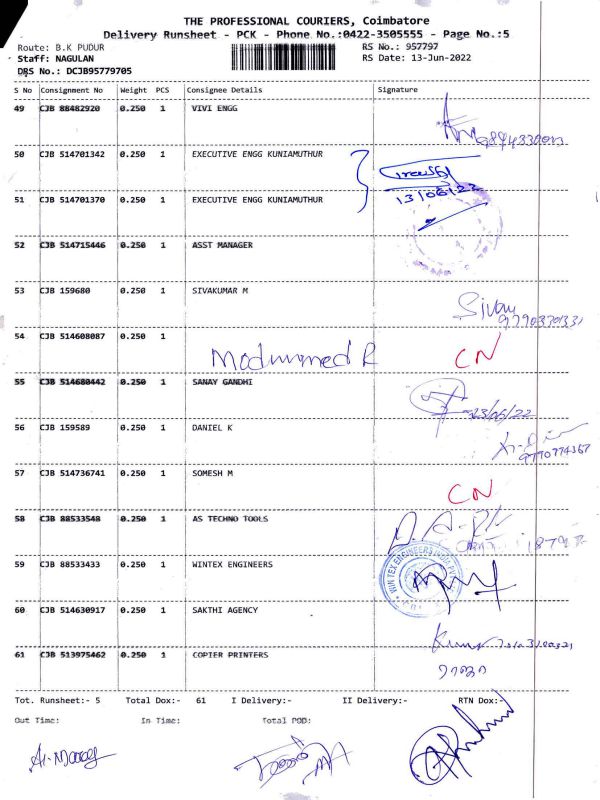 THE PROFESSIONAL COURIERS, Coimbatore
Delivery Runsheet - PCK - Phone No.:0422-3505555 - Page No.:5
Route: B.K PUDUR RS No.: 957797
Staff: NAGULAN RS Date: 13-Jun-2022
DRS No.: DCJB95779705
S No Consignment No Weight PCS Consignee Details Signature
49 CJB 88482920 0.250 1 VIVI ENGG
50 CJB 514701342 0.250 1 EXECUTIVE ENGG KUNIAMUTHUR
51 CJB 514701370 0.250 1 EXECUTIVE ENGG KUNIAMUTHUR 13/06/22
52 CJB 514715446 0.250 1 ASST MANAGER
53 CJB 159680 0.250 1 SIVAKUMAR M
54 CJB 514608087 0.250 1 CN
55 CJB 514680442 0.250 1 SANAY GANDHI
23/06/22
56 CJB 159589 0.250 1 DANIEL K
57 CJB 514736741 0.250 1 SOMESH M
CN
58 CJB 88533548 0.250 1 AS TECHNO TOOLS
59 CJB 88533433 0.250 1 WINTEX ENGINEERS
60 CJB 514630917 0.250 1 SAKTHI AGENCY
61 CJB 513975462 0.250 1 COPIER PRINTERS
Tot. Runsheet:- 5 Total Dox:- 61 I Delivery:- II Delivery:- RTN Dox:-
Out Time: In Time: Total POD: